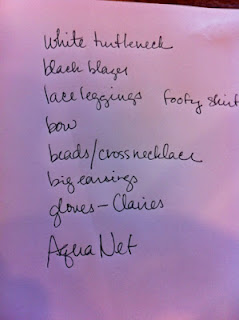 white turtleneck
black blazer
lace leggings foofy skirt
bow
beads/cross necklace
big earrings
gloves – Claires
Aqua Net